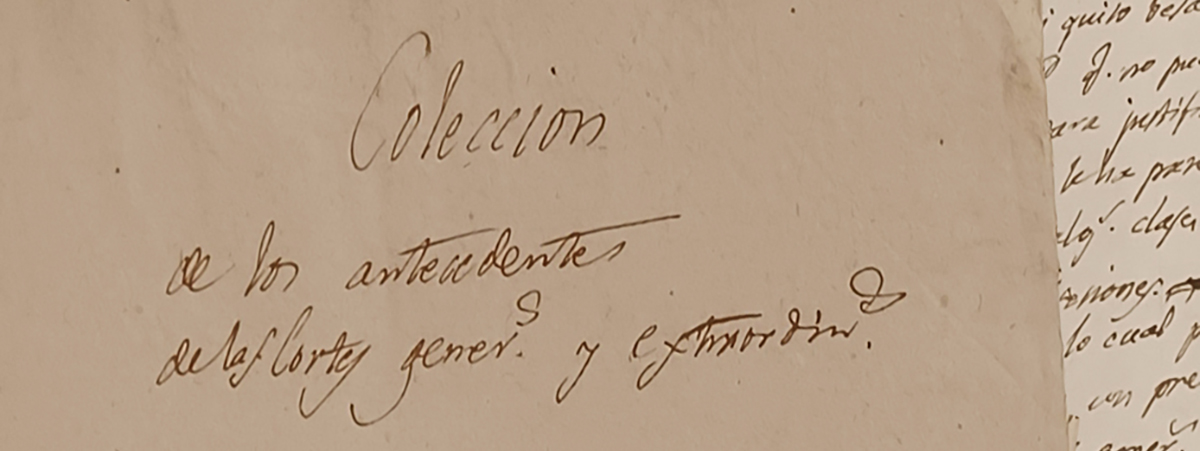 Coleccion
de los antecedentes
de las Cortes gener.s y extraordin.s
i quiso
q. no pu
ara justif
le ha para
clase
lo cual p
con pre